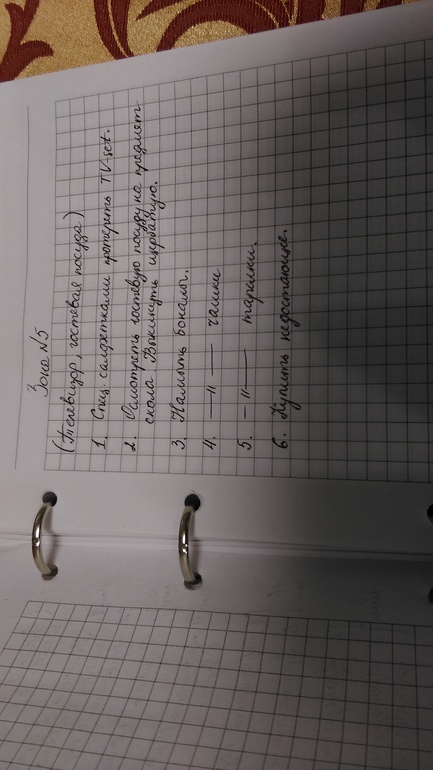 Зона №5
(Телевизор, гостевая посуда)
1. Спец. салфетками протереть TV-set.
2. Осмотреть гостевую посуду на предмет
скола. Выкинуть щербатую.
3. Намыть бокалы.
4. —"— чашки
5. —"— тарелки.
6. Купить недостающие.